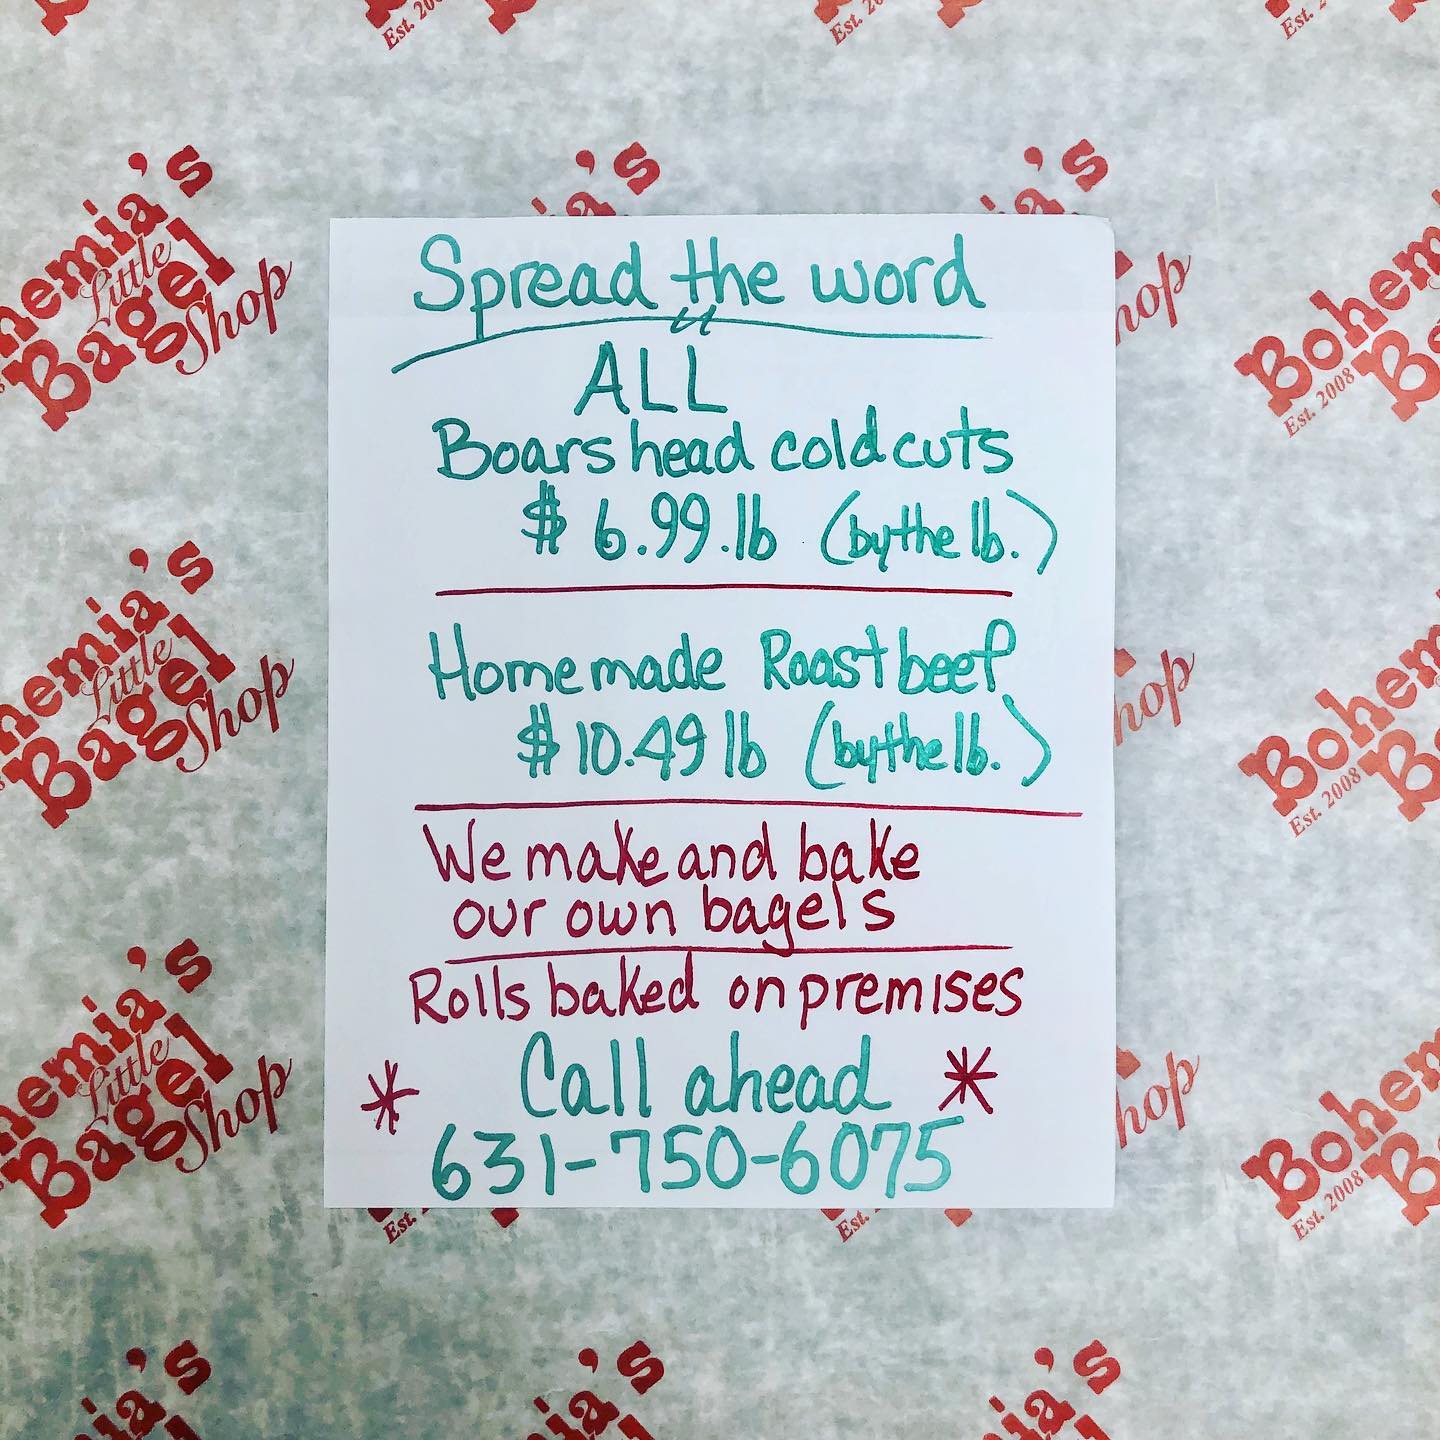 Spread the word
ALL
Boars head cold cuts
$ 6.99.lb (by the lb.)
Homemade Roast beef
$ 10.49 lb (by the lb.)
We make and bake
our own bagels
Rolls baked on premises
* Call ahead *
631-750-6075
Bohemia's
Little
Bagel
Shop
Est. 2008